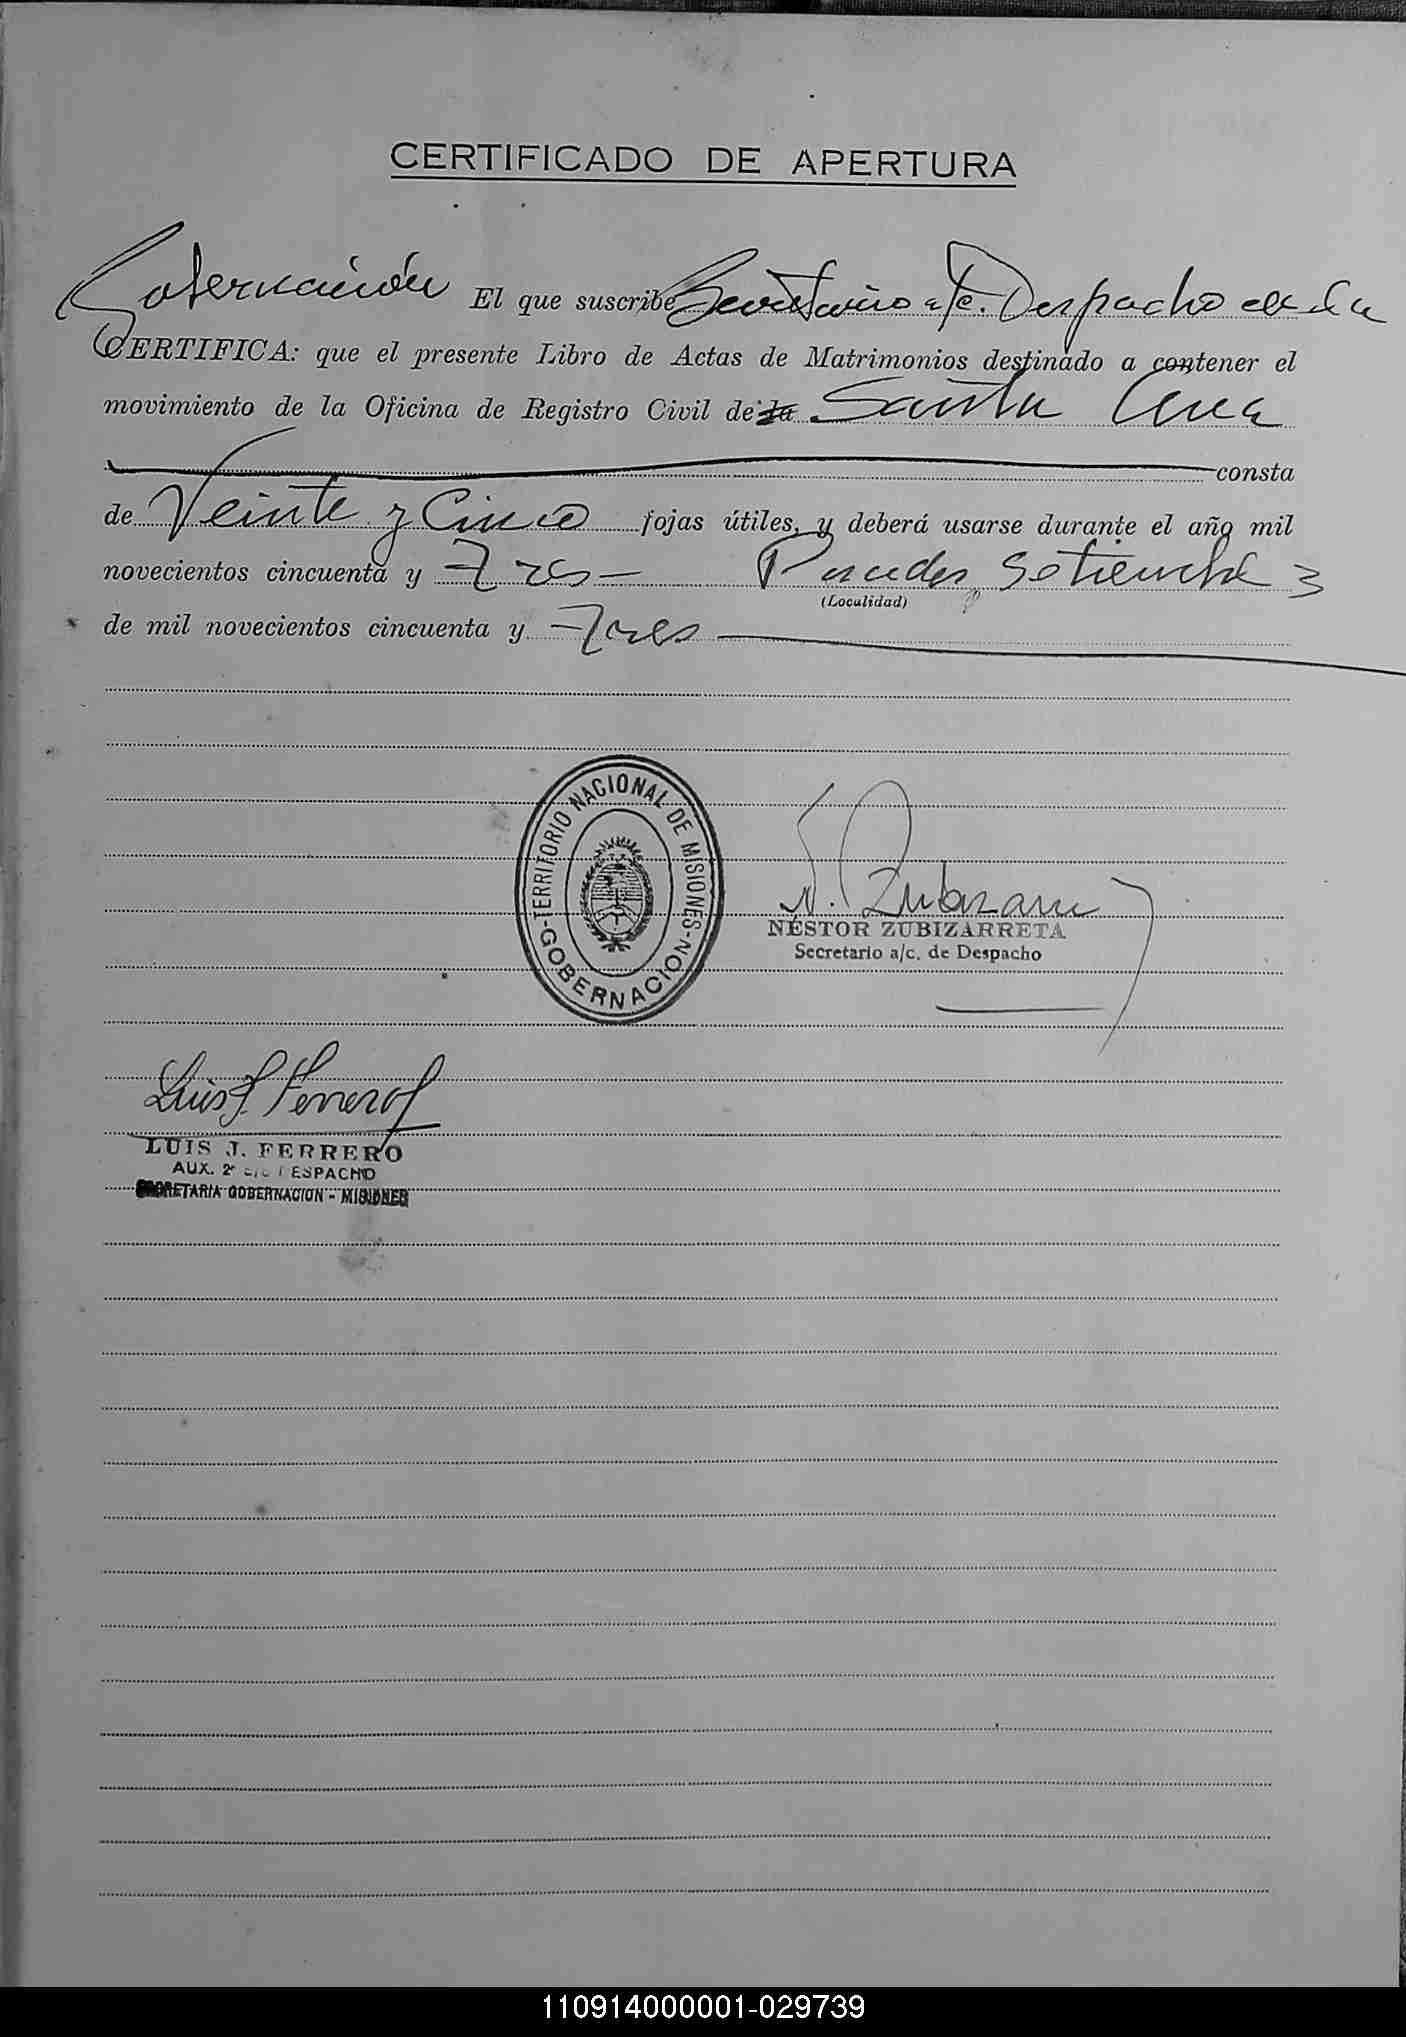 CERTIFICADO DE APERTURA
El que suscribe Secretario a/c. Despacho de la
Gobernación
CERTIFICA: que el presente Libro de Actas de Matrimonios destinado a contener el
movimiento de la Oficina de Registro Civil de la Santa Ana
consta
de Veinte y Cinco fojas útiles, y deberá usarse durante el año mil
novecientos cincuenta y Tres Posadas, Setiembre 3
(Localidad)
de mil novecientos cincuenta y Tres
TERRITORIO NACIONAL DE MISIONES
GOBERNACION
N. Zubizarreta
NÉSTOR ZUBIZARRETA
Secretario a/c. de Despacho
Luis J. Ferrero
LUIS J. FERRERO
AUX. 2º a/c DESPACHO
SECRETARIA GOBERNACION - MISIONES
110914000001-029739